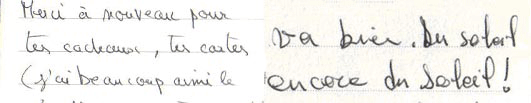 Merci à nouveau pour
tes cadeaux, tes cartes
(j'ai beaucoup aimé le
va bien. Du soleil
encore du soleil !